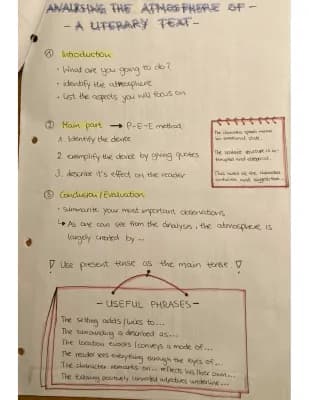 ANALYSING THE ATMOSPHERE OF -
- A LITERARY TEXT -
① Introduction
• What are you going to do?
• identify the atmosphere
• list the aspects you will focus on
② Main part → P-E-E method
1. Identify the device
2. exemplify the device by giving quotes
3. describe it's effect on the reader
The sentence structure is in-
③ Conclusion/Evaluation
• summarize your most important observations
↳ As one can see from the analysis, the atmosphere is
largely created by ...
! Use present tense as the main tense !
- USEFUL PHRASES -
The setting adds/links to ...
The surrounding is described as...
The location evokes/conveys a mode of...
The reader sees everything through the eyes of...
The character remarks on ... reflects his/her own...
The following positively connoted adjectives underline...